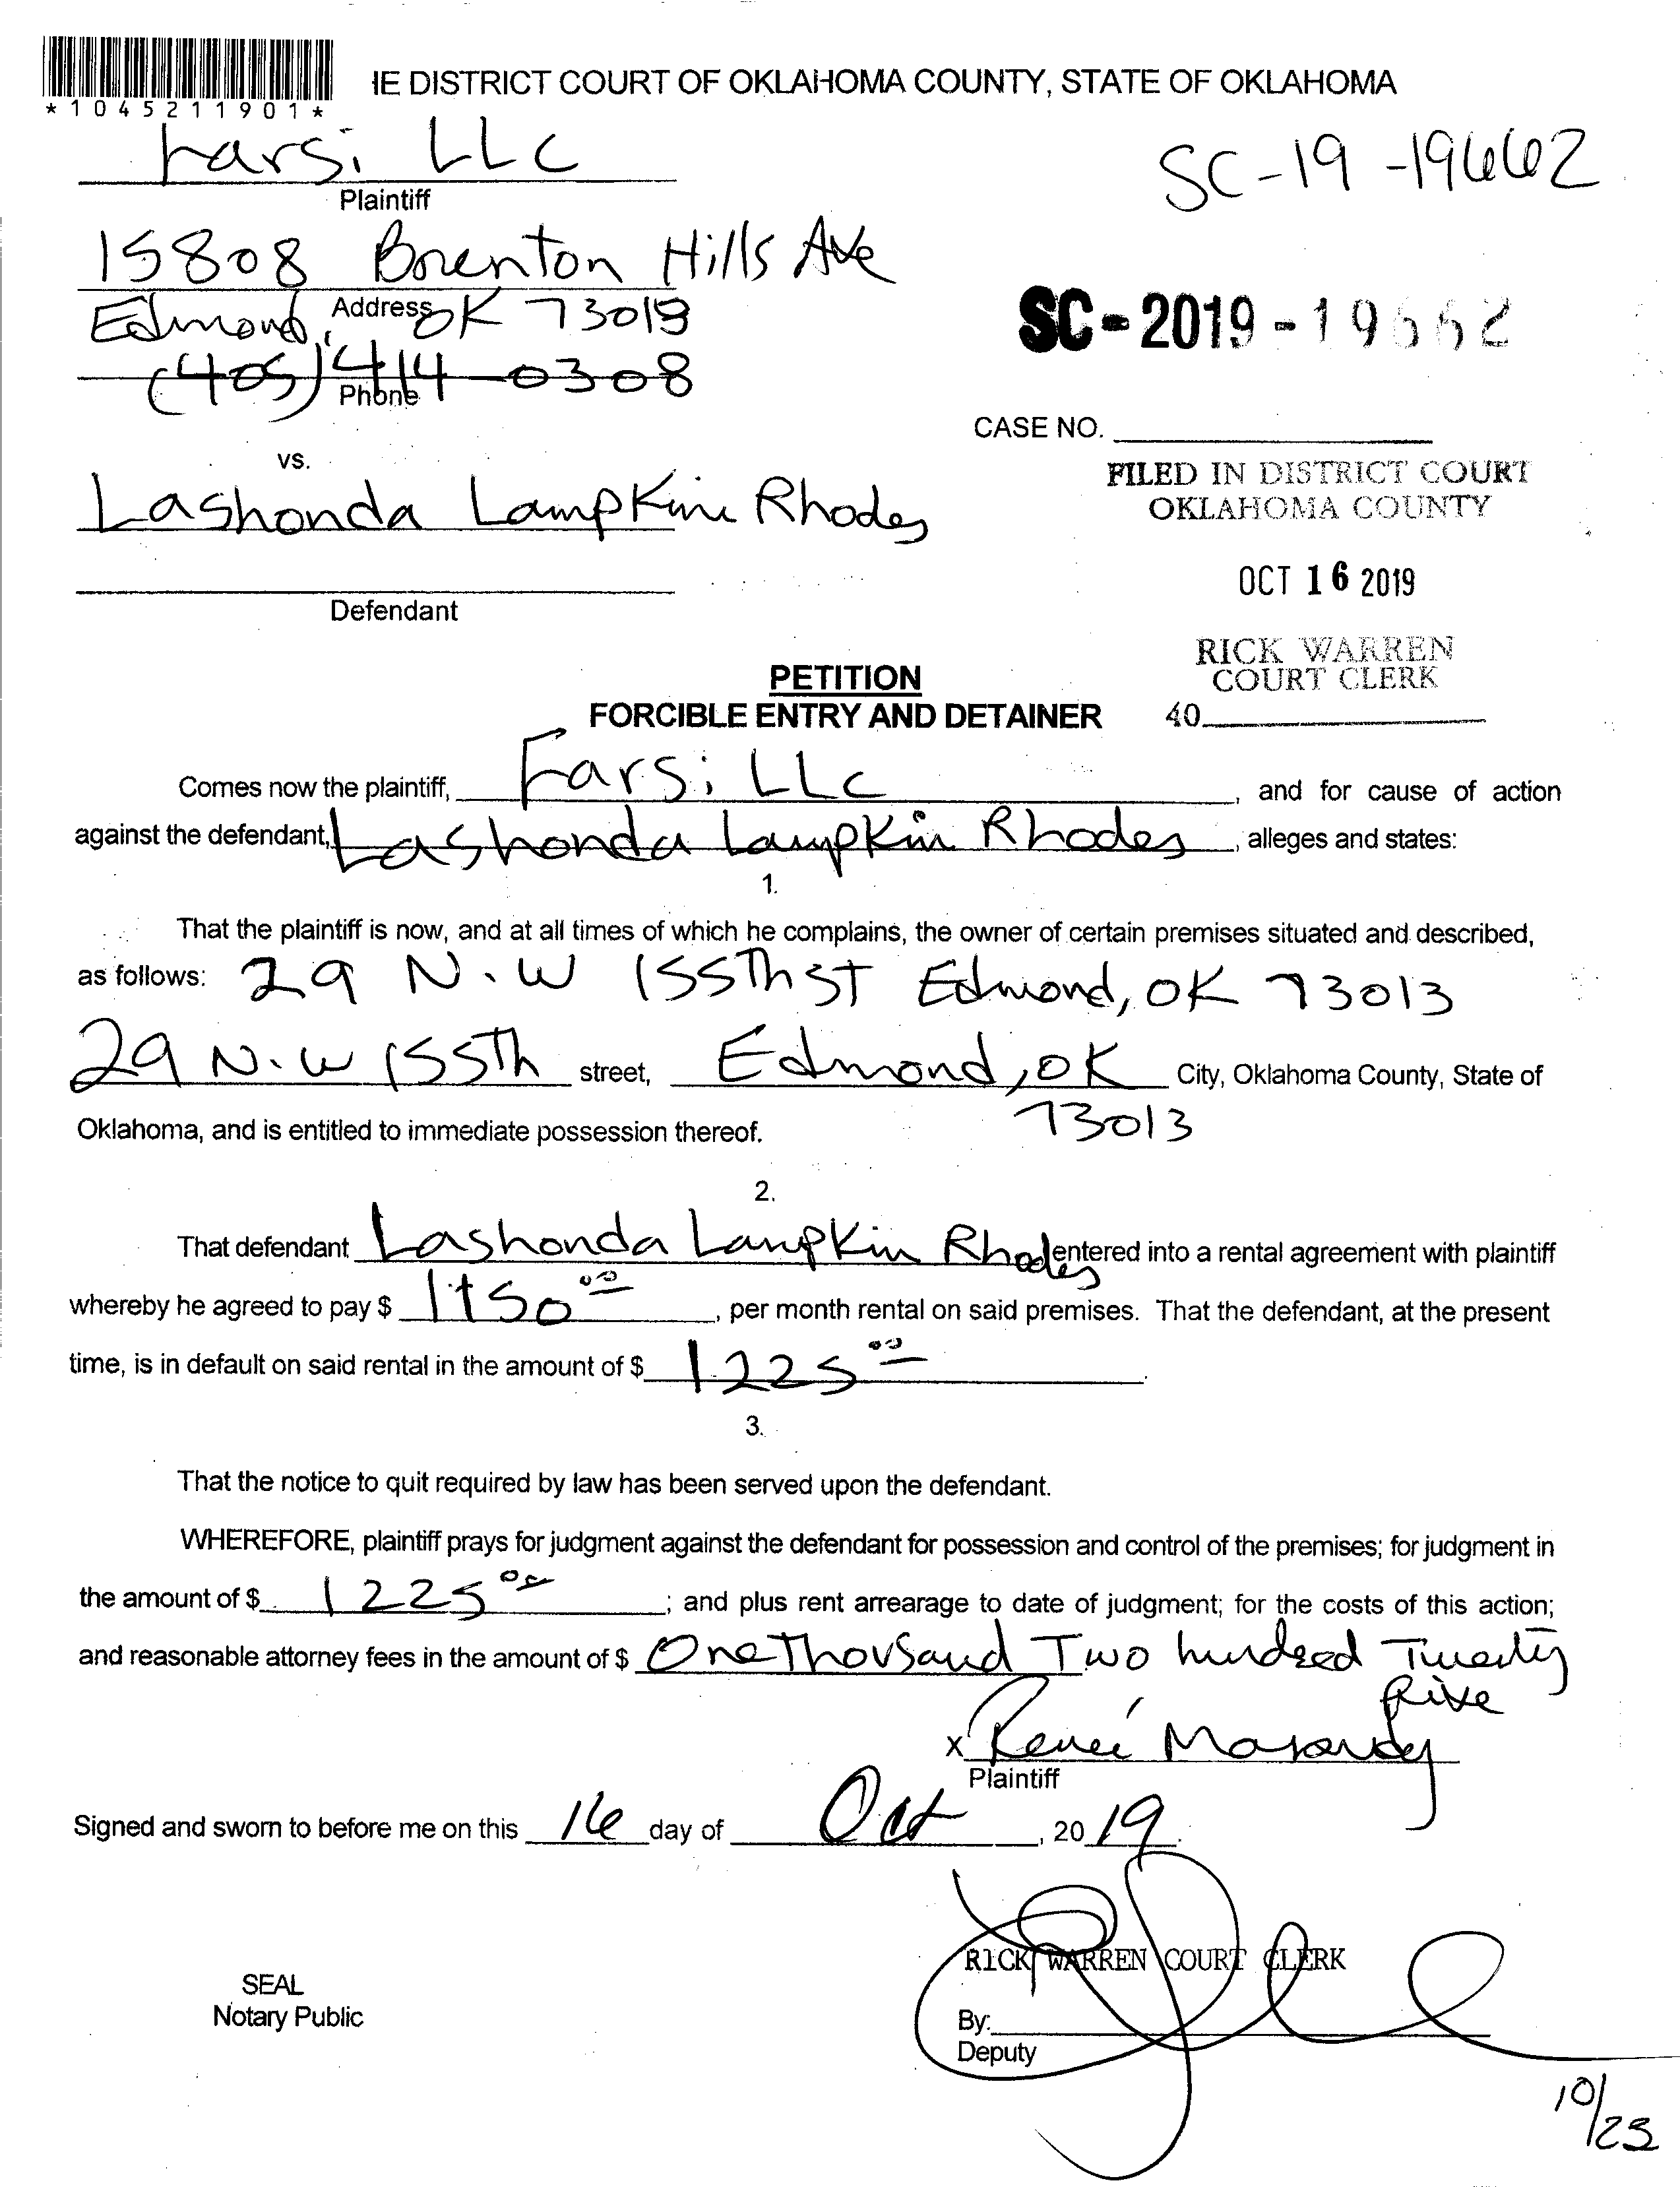 *1045211901*
IE DISTRICT COURT OF OKLAHOMA COUNTY, STATE OF OKLAHOMA
Farsi LLC
Plaintiff
SC-19-19662
15808 Brenton Hills Ave
Address
Edmond, OK 73013
(405) 414-0308
Phone
SC-2019-19662
CASE NO.
vs.
Lashonda Lampkin Rhodes
Defendant
FILED IN DISTRICT COURT
OKLAHOMA COUNTY
OCT 16 2019
RICK WARREN
COURT CLERK
40
PETITION
FORCIBLE ENTRY AND DETAINER
Comes now the plaintiff, Farsi LLC, and for cause of action
against the defendant, Lashonda Lampkin Rhodes, alleges and states:
1.
That the plaintiff is now, and at all times of which he complains, the owner of certain premises situated and described,
as follows: 29 N.W 155Th ST Edmond, OK 73013
29 N.W 155Th street, Edmond, OK City, Oklahoma County, State of
73013
Oklahoma, and is entitled to immediate possession thereof.
2.
That defendant Lashonda Lampkin Rhodes entered into a rental agreement with plaintiff
whereby he agreed to pay $ 1150 00, per month rental on said premises. That the defendant, at the present
time, is in default on said rental in the amount of $ 1225 00.
3.
That the notice to quit required by law has been served upon the defendant.
WHEREFORE, plaintiff prays for judgment against the defendant for possession and control of the premises; for judgment in
the amount of $ 1225 00; and plus rent arrearage to date of judgment; for the costs of this action;
and reasonable attorney fees in the amount of $ One Thousand Two hundred Twenty
five
x Reneé
Plaintiff
Signed and sworn to before me on this 16 day of Oct, 2019.
RICK WARREN COURT CLERK
SEAL
Notary Public
By:
Deputy
10/23